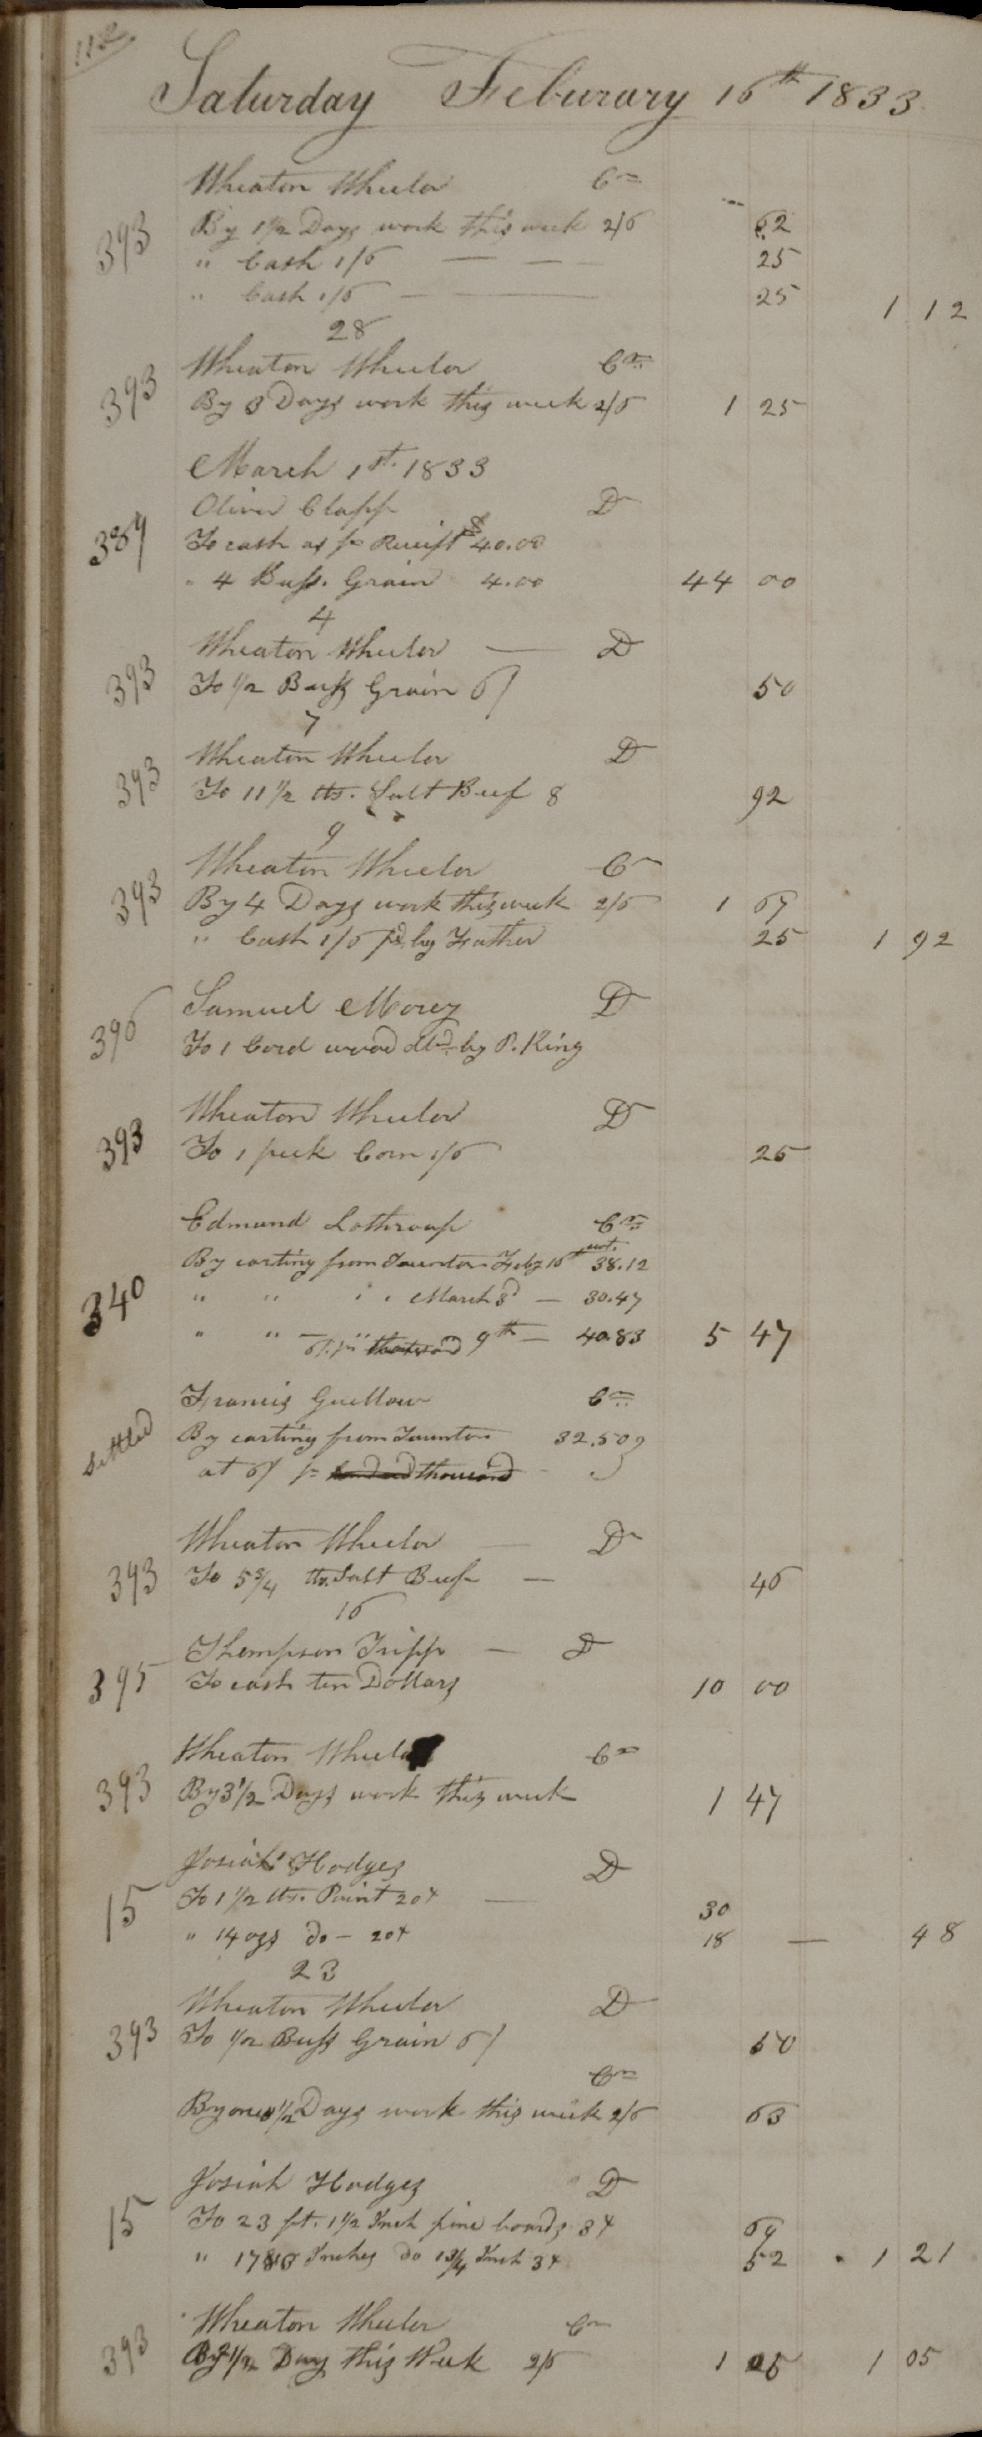 112
Saturday Feburary 16th 1833
Wheaton Wheelor Cr
393 By 1 1/2 Days work this week 2/6 62
" Cash 1/6 — — 25
" Cash 1/6 — — 25 1 12
28
Wheaton Wheelor Cr
393 By 3 Days work this week 2/6 1 25
March 1st. 1833
Oliver Clapp D
389 To cash as pr Receipt $40.00
" 4 Bush. Grain 4.00 44 00
4
Wheaton Wheelor — D
393 To 1/2 Bush Grain 6/ 50
7
Wheaton Wheelor D
393 To 11 1/2 lbs. Salt Beef 8 92
9
Wheaton Wheelor Cr
393 By 4 Days work this week 2/6 1 67
" Cash 1/6 pd. by Father 25 1 92
Samuel Morey D
396 To 1 Cord wood dld by P. King
Wheaton Wheelor D
393 To 1 peck Corn 1/6 25
Edmund Lothroup Cr
By carting from Taunton Feby 16th 38.12
340 " " " " March 3d — 30.47
" " 9th — 40.83 5 47
Francis Guellow Cr
settled By carting from Taunton 32.50
at 6/ pr thousand
Wheaton Wheelor — D
393 To 5 3/4 lbs. Salt Beef — 46
16
Thompson Tripp — D
395 To cash ten Dollars 10 00
Wheaton Wheelor Cr
393 By 3 1/2 Days work this week 1 47
Josiah Hodges D
15 To 1 1/2 lbs. Paint 20x — 30
" 14 ozs do — 20x 18 — 48
23
Wheaton Wheelor D
393 To 1/2 Bush Grain 6/ 50
Cr
By one & 1/2 Days work this week 2/6 63
Josiah Hodges D
15 To 23 ft. 1 1/2 Inch pine boards 3x 69
" Inches do 1 3/4 Inch 3x 52 1 21
Wheaton Wheelor Cr
393 By 2 1/2 Day this Week 2/6 1 05 1 05